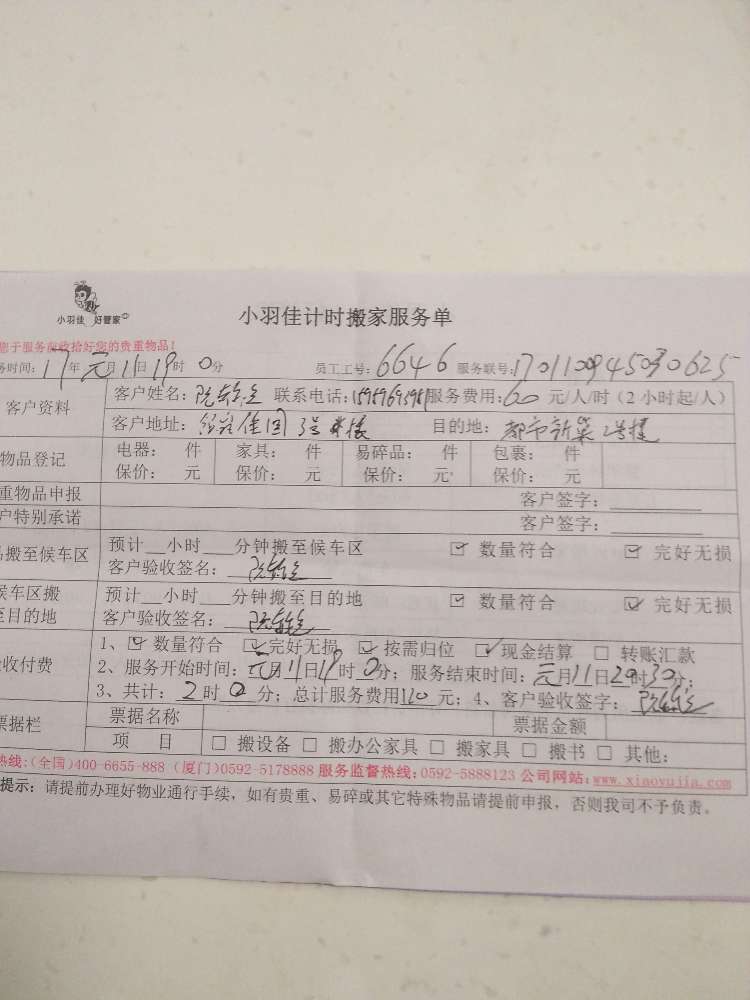 小羽佳 好管家
小羽佳计时搬家服务单
您于服务前收拾好您的贵重物品!
务时间: 17年元月11日19时0分 员工工号: 6646 服务联号:
客户资料
客户姓名: 联系电话: 服务费用: 60 元/人/时(2小时起/人)
客户地址: 目的地: 都市新巢2号楼
物品登记
电器: 件 家具: 件 易碎品: 件 包裹: 件
保价: 元 保价: 元 保价: 元 保价: 元
重物品申报 客户签字:
户特别承诺 客户签字:
搬至候车区
预计__小时___分钟搬至候车区 ☑ 数量符合 ☑ 完好无损
客户验收签名:
候车区搬
至目的地
预计__小时___分钟搬至目的地 ☑ 数量符合 ☑ 完好无损
客户验收签名:
收付费
1、☑ 数量符合 ☑ 完好无损 ☑ 按需归位 ☑ 现金结算 □ 转账汇款
2、服务开始时间: 元月11日19时0分; 服务结束时间: 元月11日20时30分;
3、共计: 2时0分; 总计服务费用120元; 4、客户验收签字:
票据栏
票据名称 票据金额
项 目 □ 搬设备 □ 搬办公家具 □ 搬家具 □ 搬书 □ 其他:
热线:(全国)400-6655-888 (厦门)0592-5178888 服务监督热线:0592-5888123 公司网站: www.xiaoyujia.com
提示: 请提前办理好物业通行手续, 如有贵重、易碎或其它特殊物品请提前申报, 否则我司不予负责。